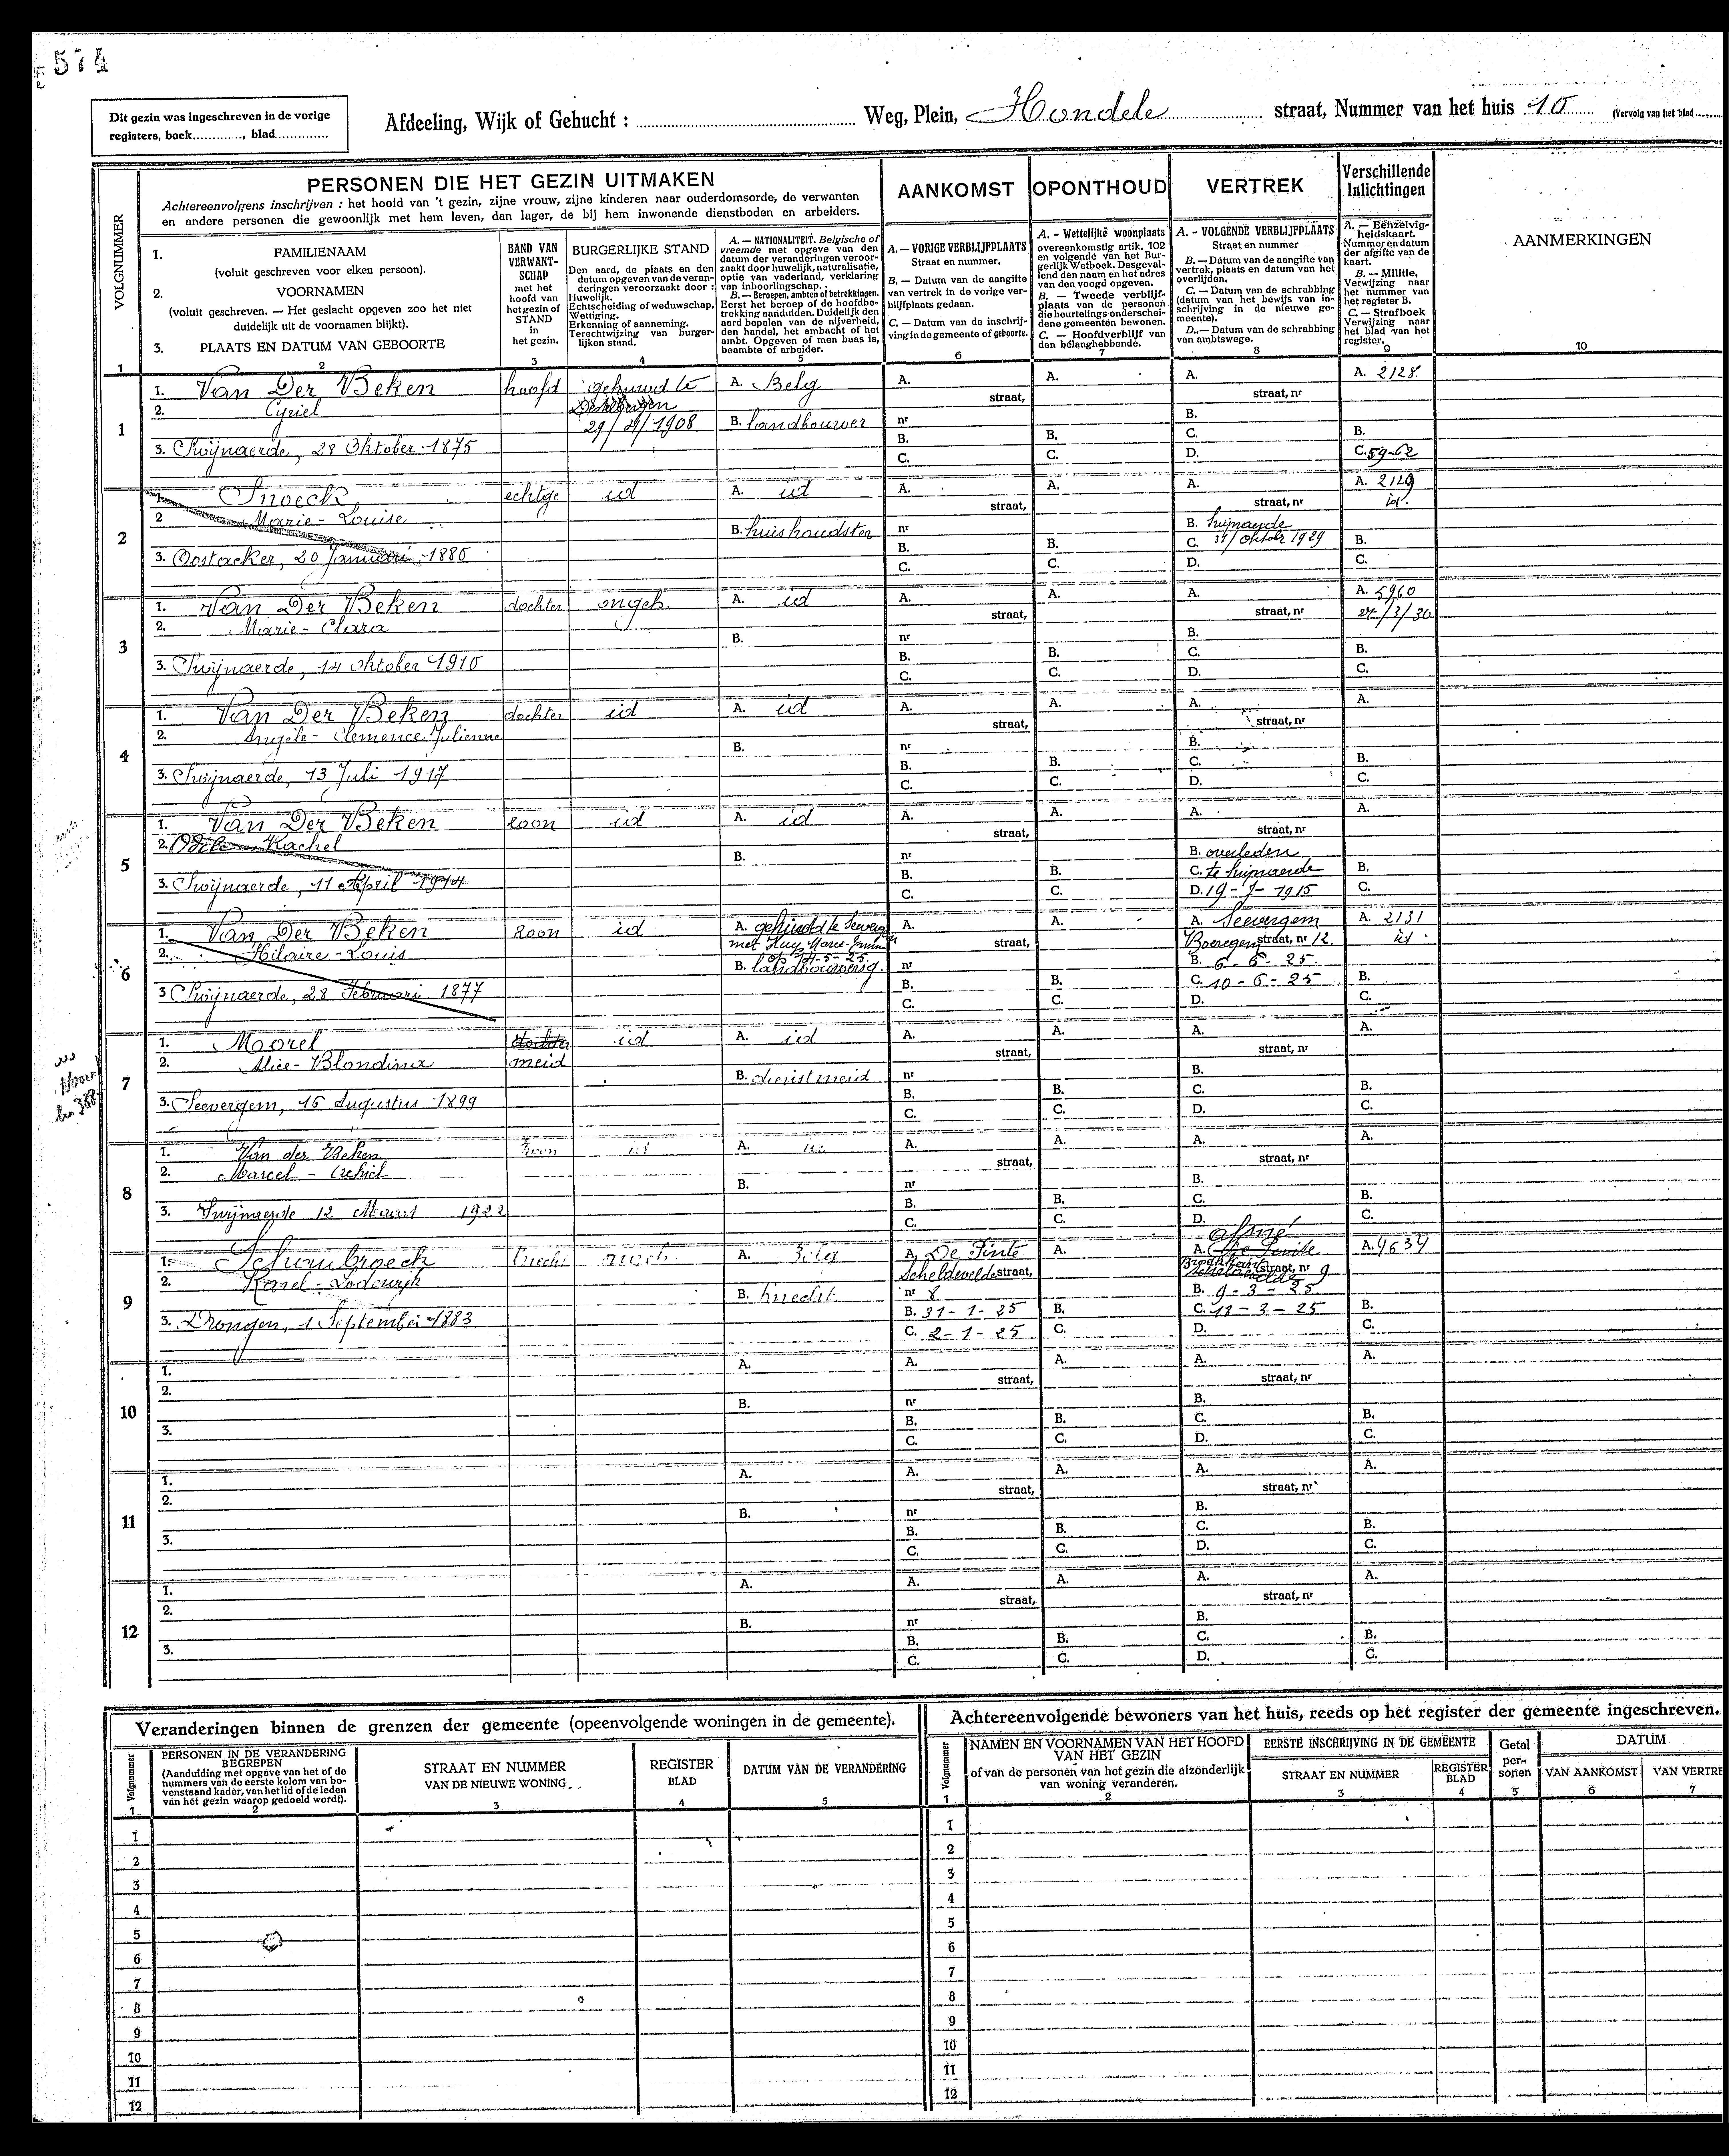 574
Dit gezin was ingeschreven in de vorige
registers, boek............, blad..............
Afdeeling, Wijk of Gehucht : Weg, Plein, Hondele straat, Nummer van het huis 10 (Vervolg van het blad
VOLGNUMMER
PERSONEN DIE HET GEZIN UITMAKEN
Achtereenvolgens inschrijven : het hoofd van 't gezin, zijne vrouw, zijne kinderen naar ouderdomsorde, de verwanten
en andere personen die gewoonlijk met hem leven, dan lager, de bij hem inwonende dienstboden en arbeiders.
AANKOMST
OPONTHOUD
VERTREK
Verschillende
Inlichtingen
1. FAMILIENAAM
(voluit geschreven voor elken persoon).
2. VOORNAMEN
(voluit geschreven. — Het geslacht opgeven zoo het niet
duidelijk uit de voornamen blijkt).
3. PLAATS EN DATUM VAN GEBOORTE
BAND VAN
VERWANT-
SCHAP
met het
hoofd van
het gezin of
STAND
in
het gezin.
BURGERLIJKE STAND
Den aard, de plaats en den
datum opgeven van de veran-
deringen veroorzaakt door :
Huwelijk.
Echtscheiding of weduwschap.
Wettiging.
Erkenning of aanneming.
Terechtwijzing van burger-
lijken stand.
A. — NATIONALITEIT. Belgische of
vreemde met opgave van den
datum der veranderingen veroor-
zaakt door huwelijk, naturalisatie,
optie van vaderland, verklaring
van inboorlingschap.
B. — Beroepen, ambten of betrekkingen.
Eerst het beroep of de hoofdbe-
trekking aanduiden. Duidelijk den
aard bepalen van de nijverheid,
den handel, het ambacht of het
ambt. Opgeven of men baas is,
beambte of arbeider.
A. — VORIGE VERBLIJFPLAATS
Straat en nummer.
B. — Datum van de aangifte
van vertrek in de vorige ver-
blijfplaats gedaan.
C. — Datum van de inschrij-
ving in de gemeente of geboorte.
A. - Wettelijke woonplaats
overeenkomstig artik. 102
en volgende van het Bur-
gerlijk Wetboek. Desgeval-
lend den naam en het adres
van den voogd opgeven.
B. — Tweede verblijf-
plaats van de personen
die beurtelings onderschei-
dene gemeenten bewonen.
C. — Hoofdverblijf van
den belanghebbende.
A. - VOLGENDE VERBLIJFPLAATS
Straat en nummer
B. — Datum van de aangifte van
vertrek, plaats en datum van het
overlijden.
C. — Datum van de schrabbing
(datum van het bewijs van in-
schrijving in de nieuwe ge-
meente).
D. — Datum van de schrabbing
van ambtswege.
A. — Eenzelvig-
heidskaart.
Nummer en datum
der afgifte van de
kaart.
B. — Militie.
Verwijzing naar
het nummer van
het register B.
C. — Strafboek
Verwijzing naar
het blad van het
register.
AANMERKINGEN
1 2 3 4 5 6 7 8 9 10
1
1. Van Der Beken hoofd gehuwd te A. Belg A. straat, A. A. straat, nr A. 2128
2. Cyriel 29/4/1908 B. landbouwer nr B.
3. Swijnaerde, 28 Oktober 1875 B. C. B. C. C. D. B. C. 59-62
2
1. Snoeck echtge id A. id A. straat, A. A. straat, nr A. 2129
2 Marie - Louise B. huishoudster nr B. id.
3. Oostacker, 20 Januari 1880 B. C. B. C. C. 31/Oktober 1929 D. B. C.
3
1. Van Der Beken dochter ongeh. A. id A. straat, A. A. straat, nr A. 5960
2. Marie - Clara B. nr B. 27/3/30
3. Swijnaerde, 14 Oktober 1910 B. C. B. C. C. D. B. C.
4
1. Van Der Beken dochter id A. id A. straat, A. A. straat, nr A.
2. Angèle - Clemence Julienne B. nr B.
3. Swijnaerde, 13 Juli 1917 B. C. B. C. C. D. B. C.
5
1. Van Der Beken zoon id A. id A. straat, A. A. straat, nr A.
2. Rachel B. nr B. overleden
3. Swijnaerde, 11 April 1914 B. C. B. C. C. te Swijnaerde D. 19-7-1915 B. C.
6
1. Van Der Beken zoon id A. gehuwd te Seevergem A. straat, A. A. Seevergem straat, nr 12. A. 2131
2. Hilaire - Louis met Huy Marie op 14-5-25. B. nr B. 6-6-25. id
3 Swijnaerde, 28 Februari 1877 B. C. B. C. C. 10-6-25 D. B. C.
7
1. Morel dochter id A. id A. straat, A. A. straat, nr A.
2. Alice - Blondina meid B. dienstmeid nr B.
3. Seevergem, 16 Augustus 1899 B. C. B. C. C. D. B. C.
8
1. Van der Beken zoon id A. id A. straat, A. A. straat, nr A.
2. Marcel - B. nr B.
3. Swijnaerde 12 Maart 1922 B. C. B. C. C. D. B. C.
9
1. knecht A. Belg A. De Pinte Scheldevelde straat, A. A. afsné De Pinte straat, nr 9 A. 4634
2. Karel - Lodewyk B. knecht nr 8 B. 9-3-25
3. Drongen, 1 September 1883 B. 31-1-25 C. 2-1-25 B. C. C. 18-3-25 D. B. C.
10
1. A. A. straat, A. A. straat, nr A.
2. B. nr B.
3. B. C. B. C. C. D. B. C.
11
1. A. A. straat, A. A. straat, nr A.
2. B. nr B.
3. B. C. B. C. C. D. B. C.
12
1. A. A. straat, A. A. straat, nr A.
2. B. nr B.
3. B. C. B. C. C. D. B. C.
Veranderingen binnen de grenzen der gemeente (opeenvolgende woningen in de gemeente).
Volgnummer
PERSONEN IN DE VERANDERING
BEGREPEN
(Aanduiding met opgave van het of de
nummers van de eerste kolom van bo-
venstaand kader, van het lid of de leden
van het gezin waarop gedoeld wordt).
STRAAT EN NUMMER
VAN DE NIEUWE WONING
REGISTER
BLAD
DATUM VAN DE VERANDERING
1 2 3 4 5
1
2
3
4
5
6
7
8
9
10
11
12
Achtereenvolgende bewoners van het huis, reeds op het register der gemeente ingeschreven.
Volgnummer
NAMEN EN VOORNAMEN VAN HET HOOFD
VAN HET GEZIN
of van de personen van het gezin die afzonderlijk
van woning veranderen.
EERSTE INSCHRIJVING IN DE GEMEENTE
STRAAT EN NUMMER
REGISTER
BLAD
Getal
per-
sonen
DATUM
VAN AANKOMST
VAN VERTRE
1 2 3 4 5 6 7
1
2
3
4
5
6
7
8
9
10
11
12